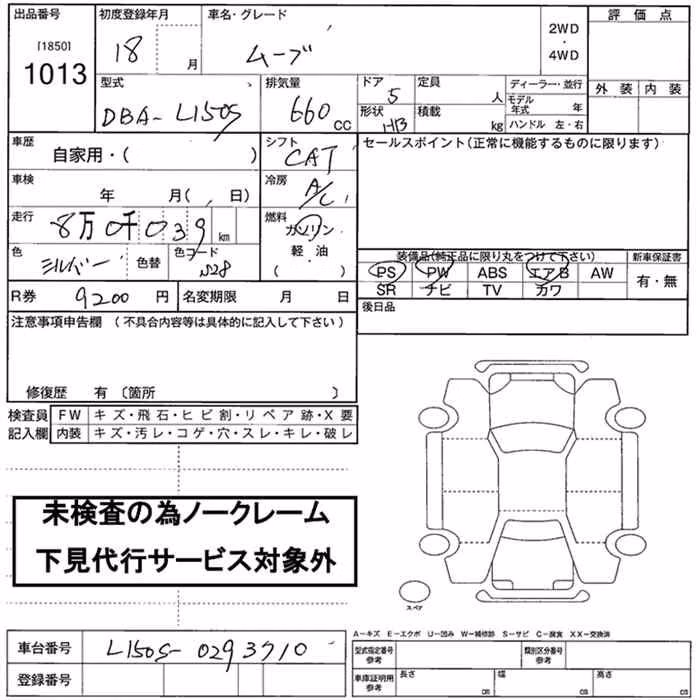 出品番号
[1850]
1013
初度登録年月
18 月
車名・グレード
ムーブ
2WD
・
4WD
評価点
外装 内装
型式
DBA-L150S
排気量
660 cc
ドア
5
形状
HB
定員
人
積載
kg
ディーラー・並行
モデル年式 年
ハンドル 左・右
車歴
自家用・( )
シフト
CAT
セールスポイント(正常に機能するものに限ります)
車検
年 月( 日)
冷房
A/C
走行
8万0千039 km
燃料
ガソリン
軽・油
( )
色
シルバー
色替
色コード
S28
装備品(純正品に限り丸をつけて下さい)
PS PW ABS エアB AW
SR ナビ TV カワ
新車保証書
有・無
R券
9200 円
名変期限 月 日
後日品
注意事項申告欄 (不具合内容等は具体的に記入して下さい)
修復歴 有 〔箇所 〕
検査員
記入欄
FW キズ・飛石・ヒビ割・リペア跡・X要
内装 キズ・汚レ・コゲ・穴・スレ・キレ・破レ
未検査の為ノークレーム
下見代行サービス対象外
スペア
A-キズ E-エクボ U-凹み W-補修跡 S-サビ C-腐食 XX-交換済
車台番号
L150S-0293710
登録番号
型式指定番号
参考
類別区分番号
参考
車庫証明用
参考
長さ cm
幅 cm
高さ cm